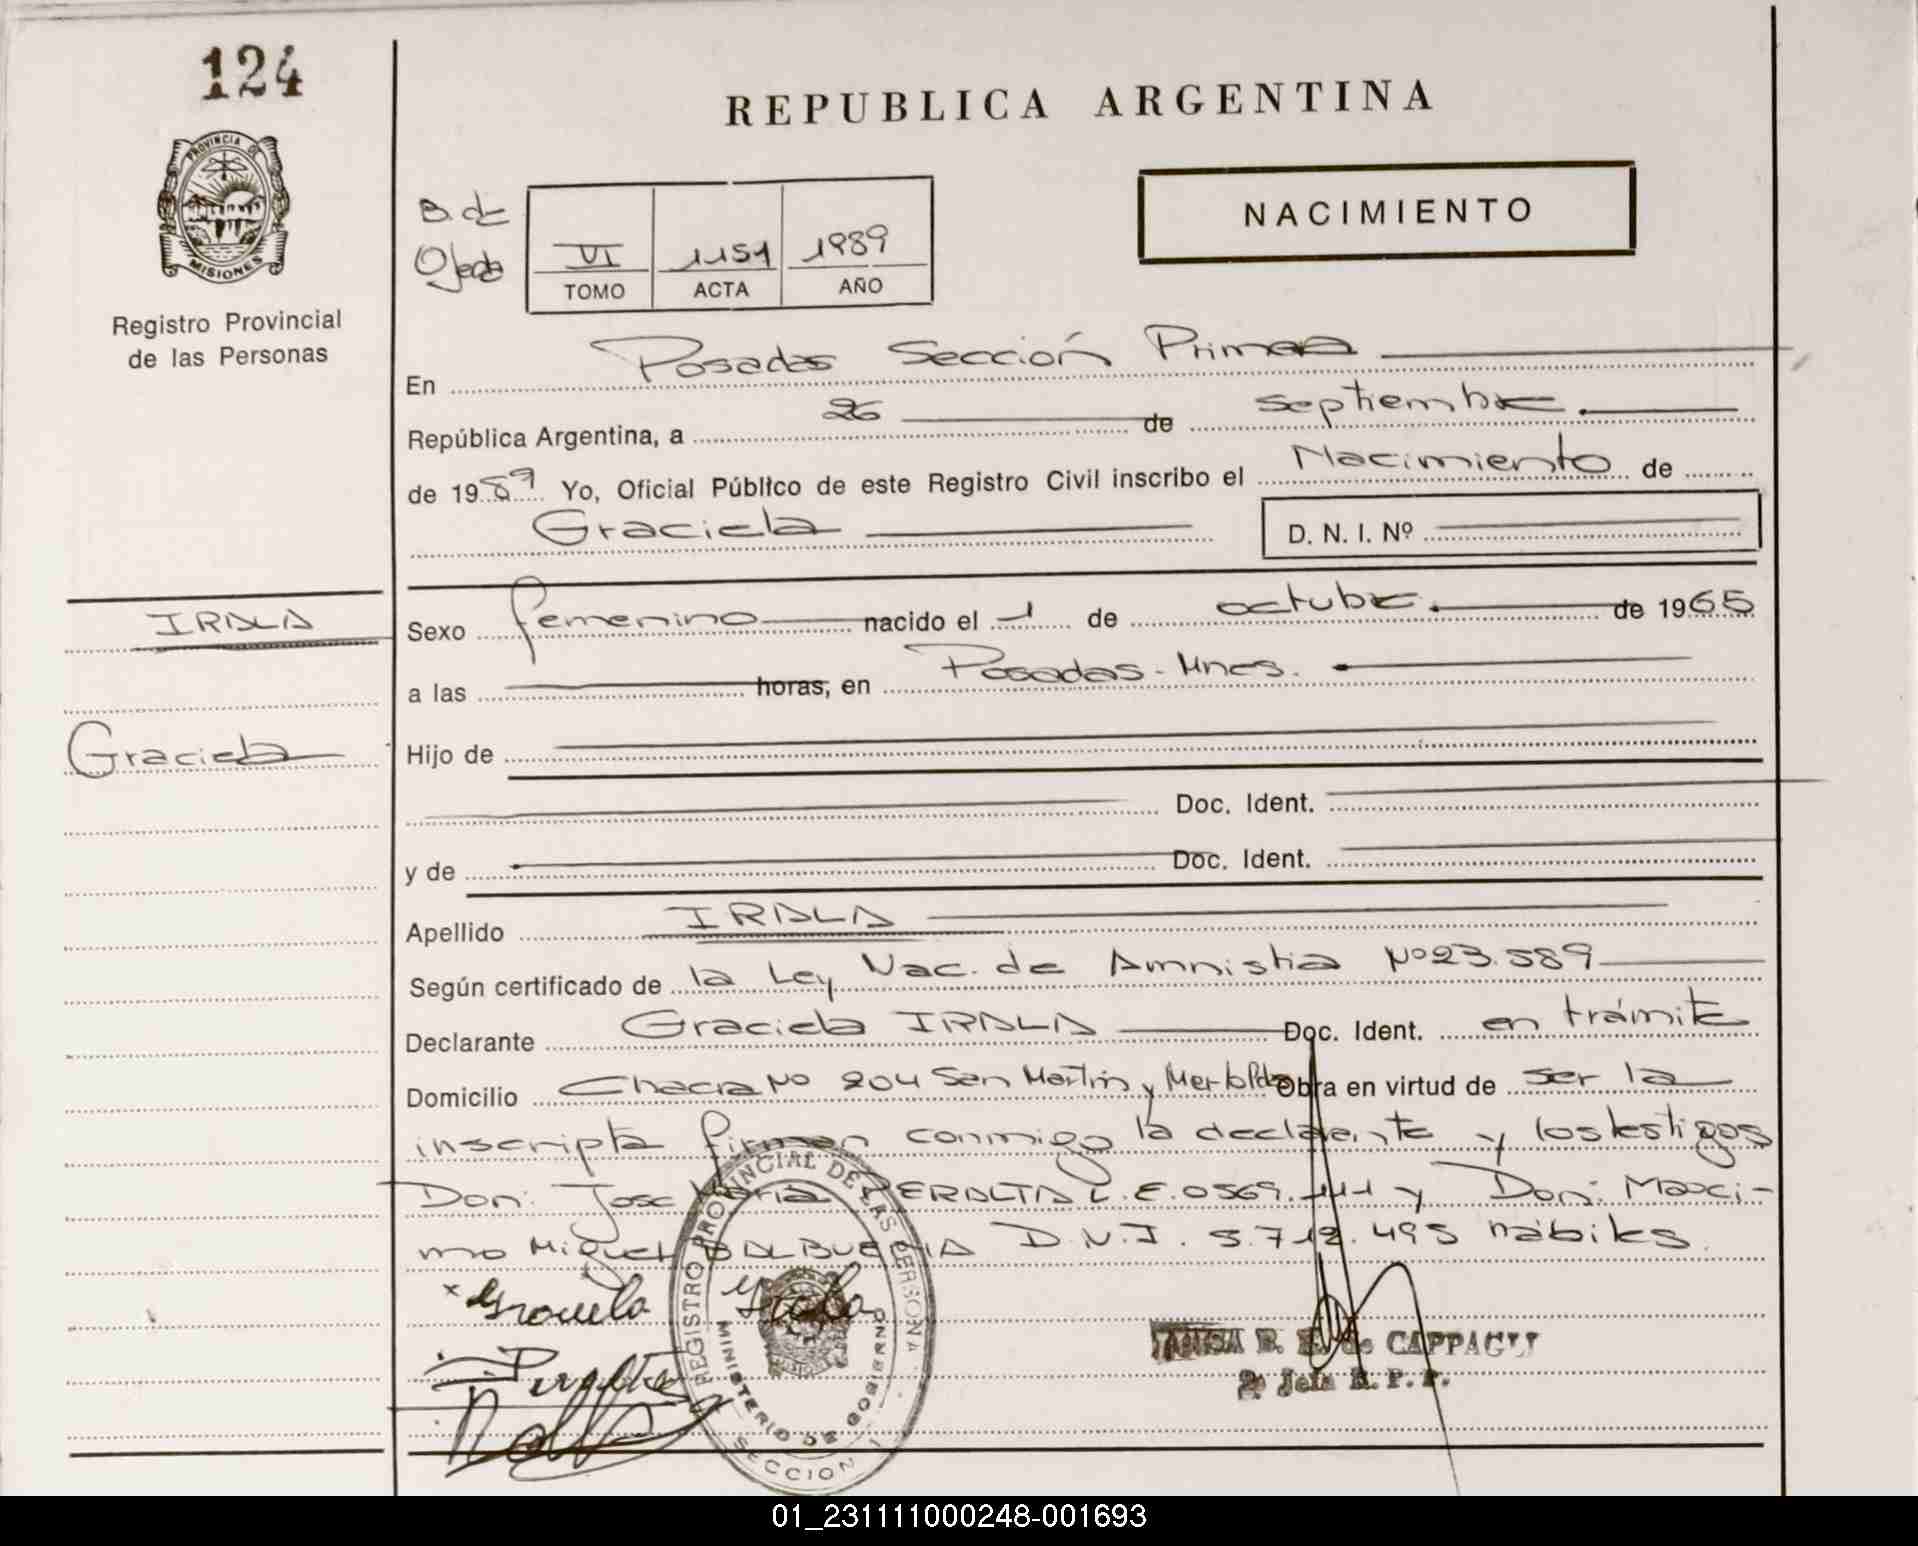 124
REPUBLICA ARGENTINA
PROVINCIA DE
MISIONES
Registro Provincial
de las Personas
B. de
Ojeda
VI 1151 1989
TOMO ACTA AÑO
NACIMIENTO
En Posadas Sección Primera
República Argentina, a 26 de septiembre.
de 1989 Yo, Oficial Público de este Registro Civil inscribo el Nacimiento de
Graciela D. N. I. Nº
IRALA
Graciela
Sexo femenino nacido el 1 de octubre. de 1965
a las horas, en Posadas - Mnes.
Hijo de
Doc. Ident.
y de Doc. Ident.
Apellido IRALA
Según certificado de la Ley Nac. de Amnistia Nº 23.589
Declarante Graciela IRALA Doc. Ident. en trámite
Domicilio Chacra Nº 204 San Martin y Obra en virtud de ser la
inscripta firman conmigo la declarante y los testigos
Don: Jose Maria PERALTA L.E. 0569.111 y Don: Maxci-
mo Miguel BALBUENA D.N.I. 5.712.495 habiles.
x Graciela Irala
Peralta
REGISTRO PROVINCIAL DE LAS PERSONAS
MINISTERIO DE GOBIERNO
SECCION 1
B. E. de CAPPAGLI
2º Jefa R. P. P.
01_231111000248-001693